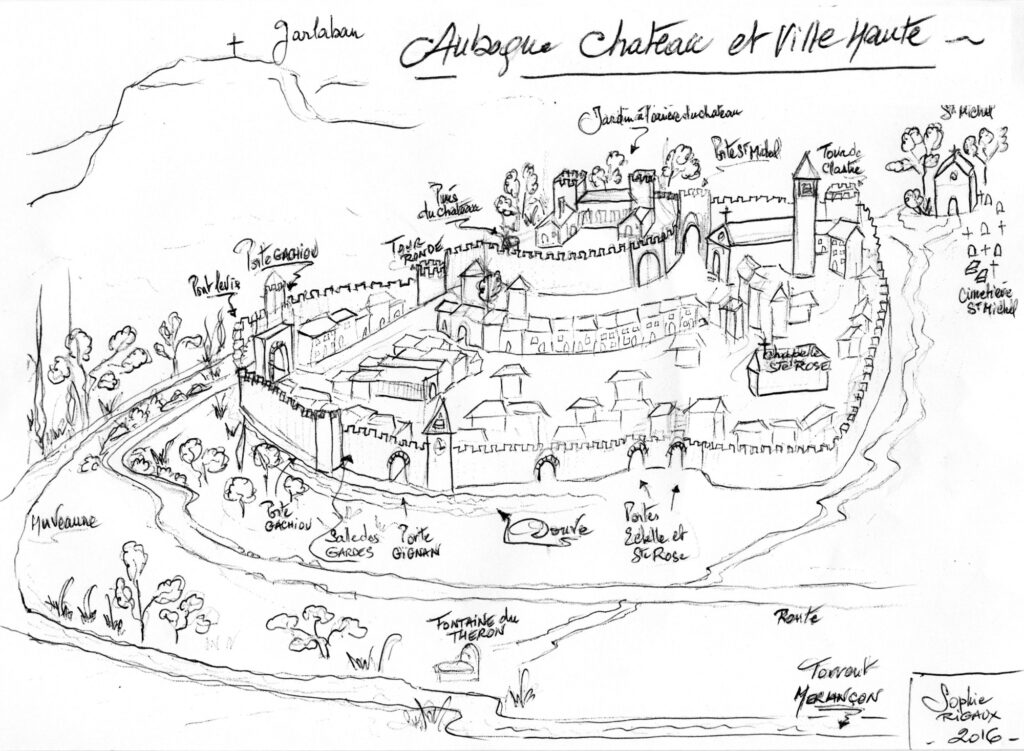 Garlaban
Aubagne Chateau et Ville Haute
Jardin à l'arrière du chateau
St Michel
Porte St Michel
Tour de
Clastre
Puis
du chateau
Tour
RONDE
Porte GACHIOU
Pont levis
Cimetière
St Michel
Chapelle
Ste ROSE
HuVeaune
Porte
GACHIOU
Salle des
GARDES
Porte
GIGNAN
Douve
Portes
Echelle et
Ste Rose
FONTAINE du
THERON
Route
Torrent
MERLANÇON
Sophie
RIGAUX
- 2016 -